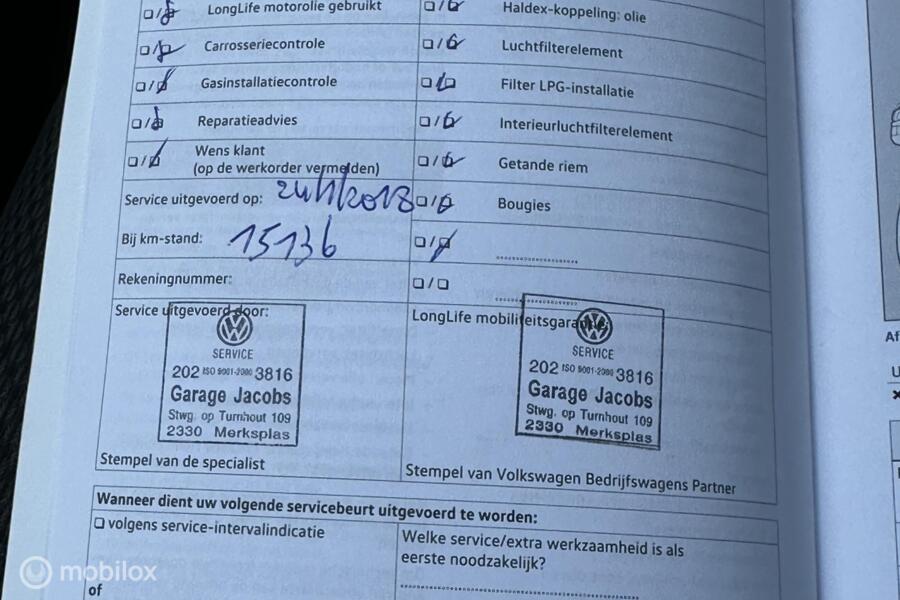 LongLife motorolie gebruikt
Carrosseriecontrole
Gasinstallatiecontrole
Reparatieadvies
Wens klant
(op de werkorder vermelden)
Service uitgevoerd op:
Bij km-stand: 15136
Rekeningnummer:
Service uitgevoerd door:
SERVICE
202 ISO 9001-2000 3816
Garage Jacobs
Stwg. op Turnhout 109
2330 Merksplas
Stempel van de specialist
Haldex-koppeling: olie
Luchtfilterelement
Filter LPG-installatie
Interieurluchtfilterelement
Getande riem
Bougies
LongLife mobiliteitsgarantie:
SERVICE
202 ISO 9001-2000 3816
Garage Jacobs
Stwg. op Turnhout 109
2330 Merksplas
Stempel van Volkswagen Bedrijfswagens Partner
Wanneer dient uw volgende servicebeurt uitgevoerd te worden:
volgens service-intervalindicatie
of
Welke service/extra werkzaamheid is als
eerste noodzakelijk?
Af
mobilox